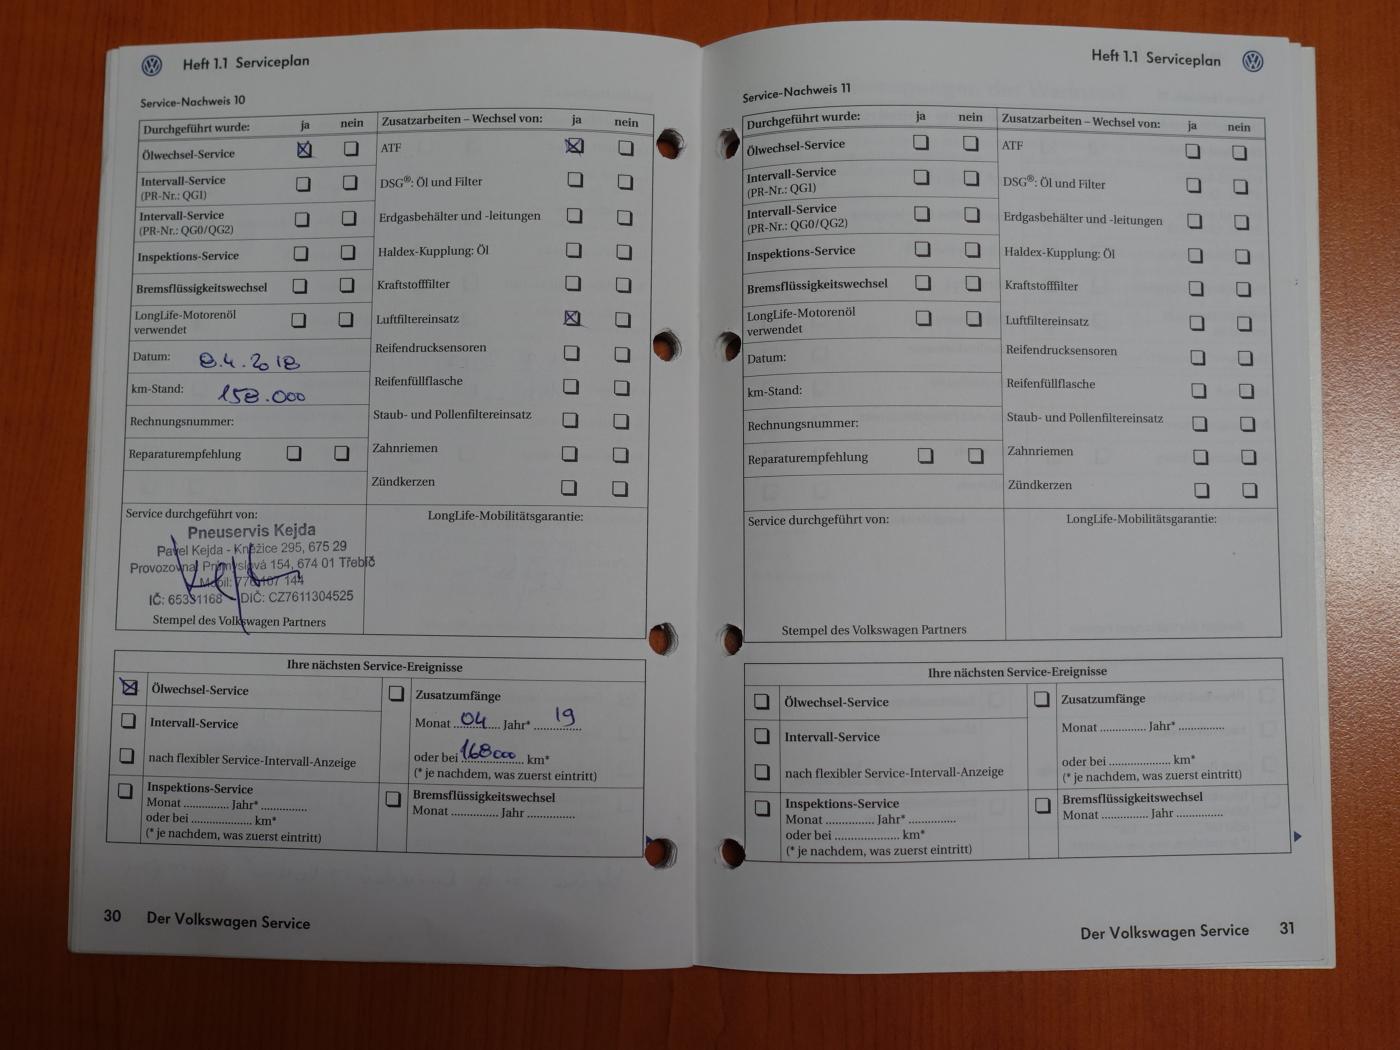 Heft 1.1 Serviceplan
Service-Nachweis 10
Durchgeführt wurde: ja nein
Ölwechsel-Service
Intervall-Service
(PR-Nr.: QG1)
Intervall-Service
(PR-Nr.: QG0/QG2)
Inspektions-Service
Bremsflüssigkeitswechsel
LongLife-Motorenöl
verwendet
Datum: 8.4.2018
km-Stand: 158.000
Rechnungsnummer:
Reparaturempfehlung
Zusatzarbeiten – Wechsel von: ja nein
ATF
DSG®: Öl und Filter
Erdgasbehälter und -leitungen
Haldex-Kupplung: Öl
Kraftstofffilter
Luftfiltereinsatz
Reifendrucksensoren
Reifenfüllflasche
Staub- und Pollenfiltereinsatz
Zahnriemen
Zündkerzen
Service durchgeführt von:
Pneuservis Kejda
Pavel Kejda - Kněžice 295, 675 29
Provozovna: Průmyslová 154, 674 01 Třebíč
Mobil: 144
IČ: 65331168 DIČ: CZ7611304525
Stempel des Volkswagen Partners
LongLife-Mobilitätsgarantie:
Ihre nächsten Service-Ereignisse
Ölwechsel-Service
Intervall-Service
nach flexibler Service-Intervall-Anzeige
Inspektions-Service
Monat ............. Jahr* .............
oder bei .................... km*
(* je nachdem, was zuerst eintritt)
Zusatzumfänge
Monat 04 Jahr* 19
oder bei 168000 km*
(* je nachdem, was zuerst eintritt)
Bremsflüssigkeitswechsel
Monat ............. Jahr .............
30 Der Volkswagen Service
Heft 1.1 Serviceplan
Service-Nachweis 11
Durchgeführt wurde: ja nein
Ölwechsel-Service
Intervall-Service
(PR-Nr.: QG1)
Intervall-Service
(PR-Nr.: QG0/QG2)
Inspektions-Service
Bremsflüssigkeitswechsel
LongLife-Motorenöl
verwendet
Datum:
km-Stand:
Rechnungsnummer:
Reparaturempfehlung
Zusatzarbeiten – Wechsel von: ja nein
ATF
DSG®: Öl und Filter
Erdgasbehälter und -leitungen
Haldex-Kupplung: Öl
Kraftstofffilter
Luftfiltereinsatz
Reifendrucksensoren
Reifenfüllflasche
Staub- und Pollenfiltereinsatz
Zahnriemen
Zündkerzen
Service durchgeführt von:
Stempel des Volkswagen Partners
LongLife-Mobilitätsgarantie:
Ihre nächsten Service-Ereignisse
Ölwechsel-Service
Intervall-Service
nach flexibler Service-Intervall-Anzeige
Inspektions-Service
Monat ............. Jahr* .............
oder bei .................... km*
(* je nachdem, was zuerst eintritt)
Zusatzumfänge
Monat ............. Jahr* .............
oder bei .................... km*
(* je nachdem, was zuerst eintritt)
Bremsflüssigkeitswechsel
Monat ............. Jahr .............
Der Volkswagen Service 31